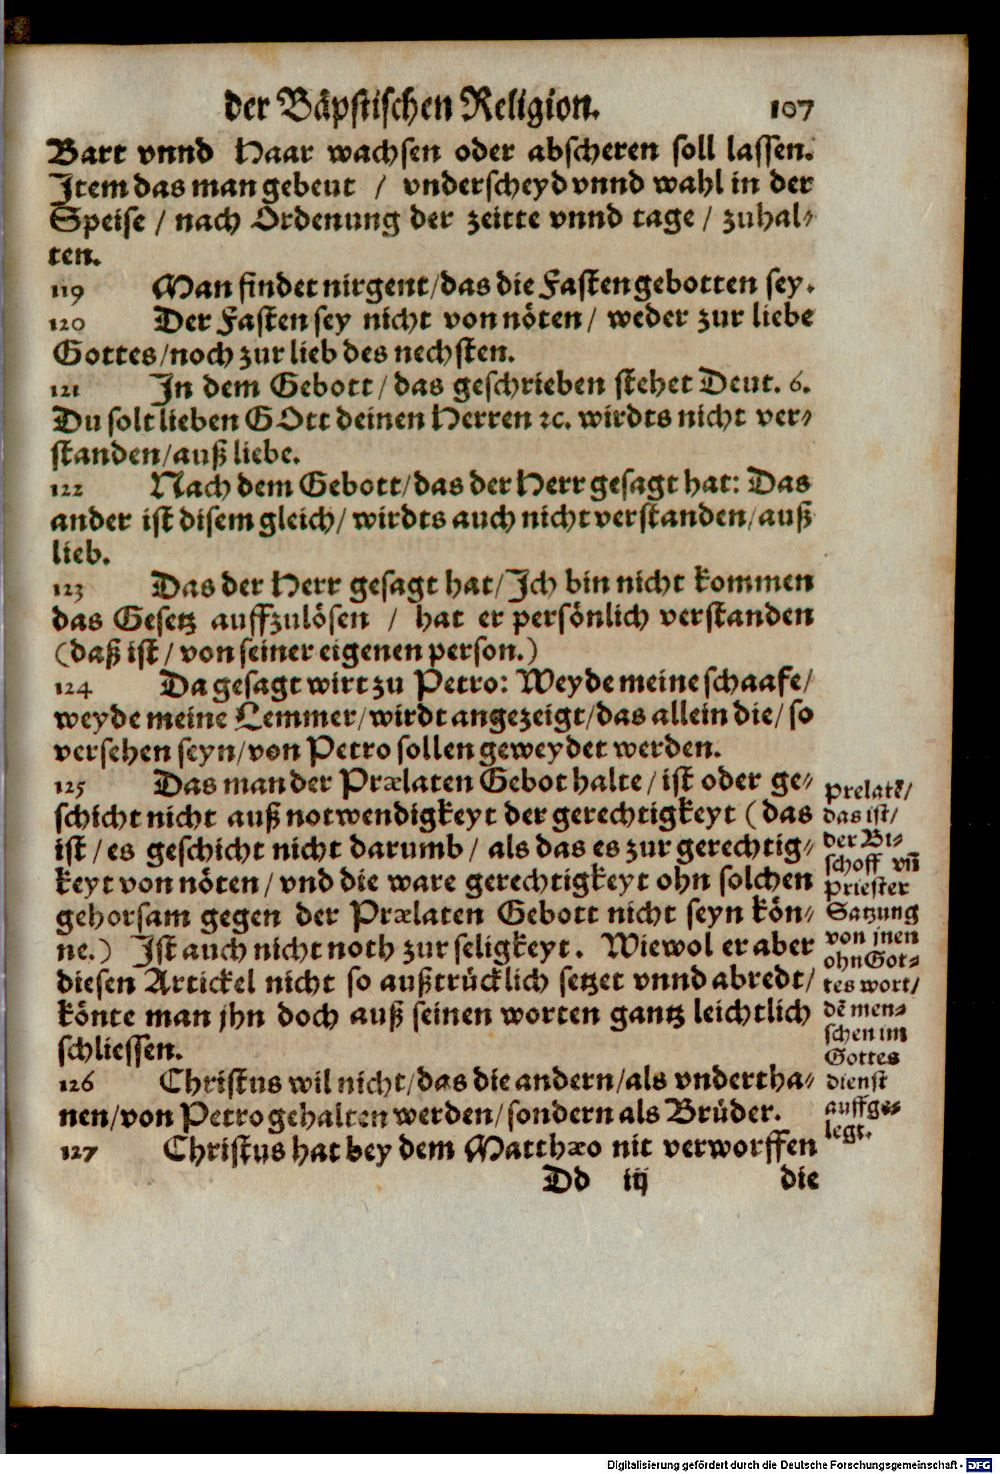 der Bäpstischen Religion. 107
Bart vnnd Haar wachsen oder abscheren soll lassen.
Item das man gebeut / vnderscheyd vnnd wahl in der
Speise / nach Ordenung der zeitte vnnd tage / zuhal-
ten.
119 Man findet nirgent/das die Fasten gebotten sey.
120 Der Fasten sey nicht von nöten / weder zur liebe
Gottes/noch zur lieb des nechsten.
121 In dem Gebott/das geschrieben stehet Deut. 6.
Du solt lieben GOtt deinen Herren ꝛc. wirdts nicht ver-
standen/auß liebe.
122 Nach dem Gebott/das der Herr gesagt hat: Das
ander ist disem gleich/wirdts auch nicht verstanden/auß
lieb.
123 Das der Herr gesagt hat/Ich bin nicht kommen
das Gesetz auffzulösen / hat er persönlich verstanden
(daß ist/von seiner eigenen person.)
124 Da gesagt wirt zu Petro: Weyde meine schaafe/
weyde meine Lemmer/wirdt angezeigt/das allein die/so
versehen seyn/von Petro sollen geweydet werden.
125 Das man der Prælaten Gebot halte/ist oder ge-
schicht nicht auß notwendigkeyt der gerechtigkeyt (das
ist/es geschicht nicht darumb/als das es zur gerechtig-
keyt von nöten/vnd die ware gerechtigkeyt ohn solchen
gehorsam gegen der Prælaten Gebott nicht seyn kön-
ne.) Ist auch nicht noth zur seligkeyt. Wiewol er aber
diesen Artickel nicht so außtrücklich setzet vnnd abredt/
könte man jhn doch auß seinen worten gantz leichtlich
schliessen.
prelatẽ/
das ist/
der Bi-
schoff vñ
priester
Satzung
von jnen
ohn Got-
tes wort/
dẽ men-
schen im
Gottes
dienst
auffge-
legt.
126 Christus wil nicht/das die andern/als vndertha-
nen/von Petro gehalten werden/sondern als Brüder.
127 Christus hat bey dem Matthæo nit verworffen
Dd iij die
Digitalisierung gefördert durch die Deutsche Forschungsgemeinschaft - DFG